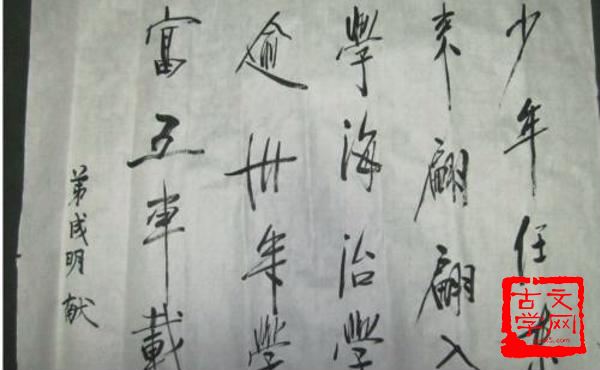 少年任
来翩翩入
學海治學
逾卅年學
富五車載
弟成明献
古文
学网